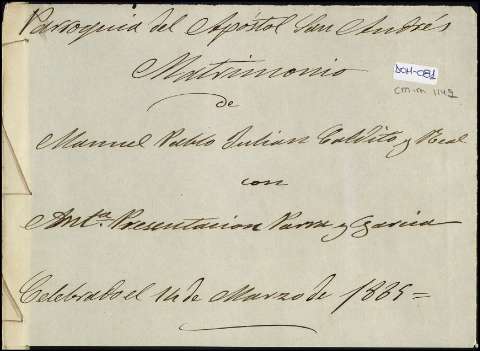 Parroquia del Apóstol San Andrés
Matrimonio
de
Manuel Pablo Julian Caldito y Real
con
Ant.ª Presentacion Parra y Garcia
Celebrado el 14 de Marzo de 1885=